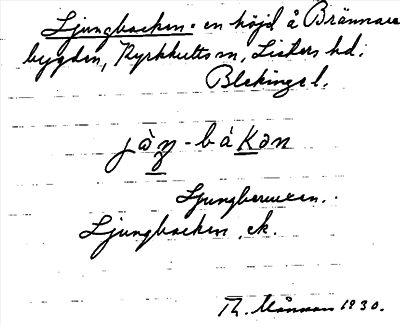 Ljungbacken - en höjd å Brännare
bygden, Kyrkhults sn, Listers hd.
Blekinge l.
jàŋ - bákən
Ljungbacken, ek.
Th. Månsson 1930.